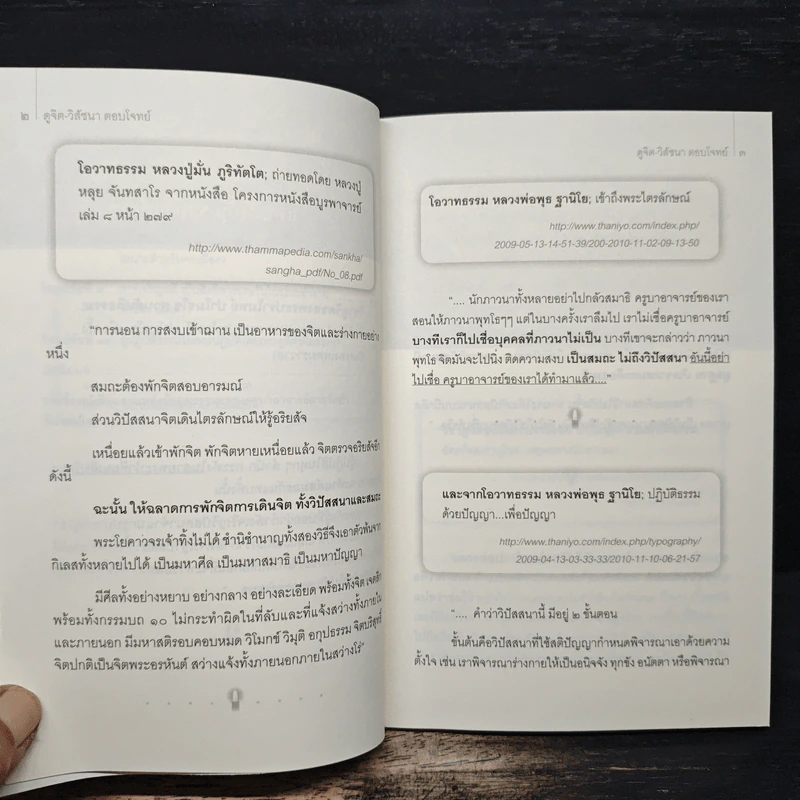 ๒ ดูจิต-วิสัชนา ตอบโจทย์
โอวาทธรรม หลวงปู่มั่น ภูริทัตโต; ถ่ายทอดโดย หลวงปู่
หลุย จันทสาโร จากหนังสือ โครงการหนังสือบูรพาจารย์
เล่ม ๘ หน้า ๒๗๙
http://www.thammapedia.com/sankha/
sangha_pdf/No_08.pdf
“การนอน การสงบเข้าฌาน เป็นอาหารของจิตและร่างกายอย่าง
หนึ่ง
สมถะต้องพักจิตสอบอารมณ์
ส่วนวิปัสสนาจิตเดินไตรลักษณ์ให้รู้อริยสัจ
เหนื่อยแล้วเข้าพักจิต พักจิตหายเหนื่อยแล้ว จิตตรวจอริยสัจอีก
ดังนี้
ฉะนั้น ให้ฉลาดการพักจิตการเดินจิต ทั้งวิปัสสนาและสมถะ
พระโยคาวจรเจ้าทิ้งไม่ได้ ชำนิชำนาญทั้งสองวิธีจึงเอาตัวพ้นจาก
กิเลสทั้งหลายไปได้ เป็นมหาศีล เป็นมหาสมาธิ เป็นมหาปัญญา
มีศีลทั้งอย่างหยาบ อย่างกลาง อย่างละเอียด พร้อมทั้งจิต เจตสิก
พร้อมทั้งกรรมบถ ๑๐ ไม่กระทำผิดในที่ลับและที่แจ้งสว่างทั้งภายใน
และภายนอก มีมหาสติรอบคอบหมด วิโมกข์ วิมุติ อกุปธรรม จิตบริสุทธิ์
จิตปกติเป็นจิตพระอรหันต์ สว่างแจ้งทั้งภายนอกภายในสว่างโร่”
ดูจิต-วิสัชนา ตอบโจทย์ ๓
โอวาทธรรม หลวงพ่อพุธ ฐานิโย; เข้าถึงพระไตรลักษณ์
http://www.thaniyo.com/index.php/
2009-05-13-14-51-39/200-2010-11-02-09-13-50
“.... นักภาวนาทั้งหลายอย่าไปกลัวสมาธิ ครูบาอาจารย์ของเรา
สอนให้ภาวนาพุทโธๆๆ แต่ในบางครั้งเราลืมไป เราไม่เชื่อครูบาอาจารย์
บางทีเราก็ไปเชื่อบุคคลที่ภาวนาไม่เป็น บางทีเขาจะกล่าวว่า ภาวนา
พุทโธ จิตมันจะไปนิ่ง ติดความสงบ เป็นสมถะ ไม่ถึงวิปัสสนา อันนี้อย่า
ไปเชื่อ ครูบาอาจารย์ของเราได้ทำมาแล้ว....”
และจากโอวาทธรรม หลวงพ่อพุธ ฐานิโย; ปฏิบัติธรรม
ด้วยปัญญา...เพื่อปัญญา
http://www.thaniyo.com/index.php/typography/
2009-04-13-03-33-33/2010-11-10-06-21-57
“.... คำว่าวิปัสสนานี้ มีอยู่ ๒ ขั้นตอน
ขั้นต้นคือวิปัสสนาที่ใช้สติปัญญากำหนดพิจารณาเอาด้วยความ
ตั้งใจ เช่น เราพิจารณาร่างกายให้เป็นอนิจจัง ทุกขัง อนัตตา หรือพิจารณา